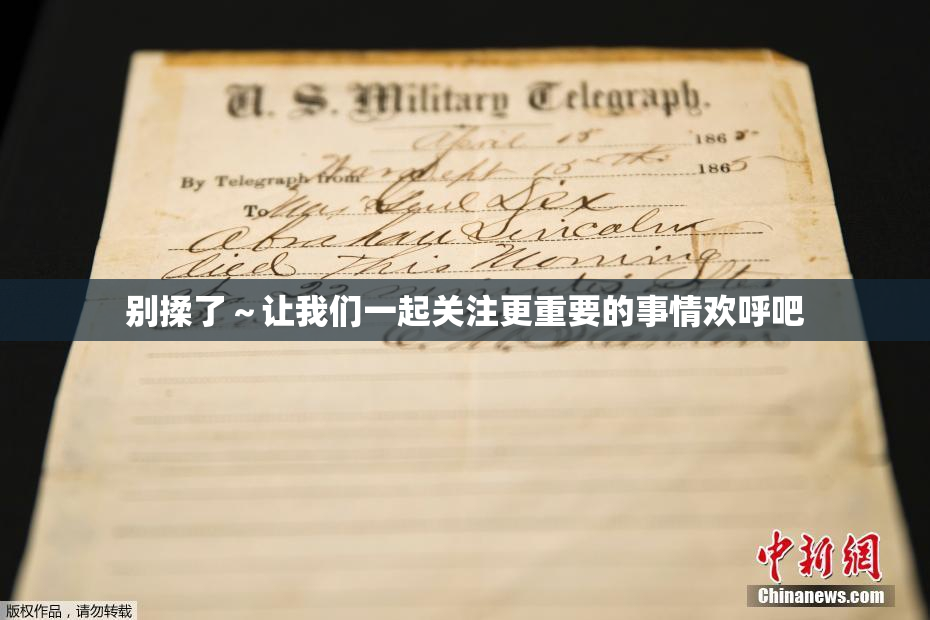 U. S. Military Telegraph.
April 15 1865
By Telegraph from War Dept 15th 1865
To Maj Genl Dix
Abraham Lincoln
died This Morning
at 22 minutes after
别揉了～让我们一起关注更重要的事情欢呼吧
E. M. Stanton
中新网
Chinanews.com
版权作品，请勿转载